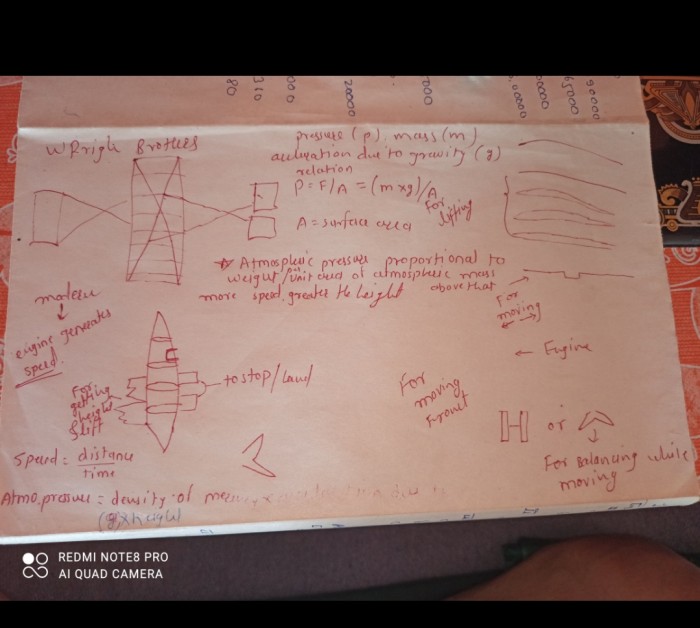 80
310
000
20000
7000
00000
00000
65000
90000
WRrigh Brothers
pressure (p). mass (m)
acceleration due to gravity (g)
relation
P = F/A = (m x g)/A
A = surface area
For
lifting
Atmospheric pressure proportional to
weight/per unit area of atmospheric mass
more speed, greater the height above that
For
moving
modern
engine generates
speed.
For
getting
height
& lift
to stop/Land
For
moving
Front
← Engine
or
For Balancing while
moving
Speed = distance
time
Atmo. pressure = density of
(g) x height
REDMI NOTE8 PRO
AI QUAD CAMERA